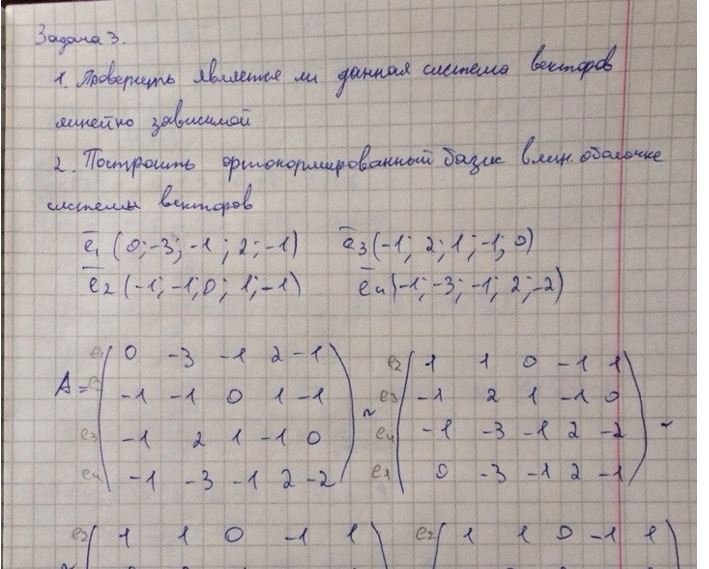 Задача 3.
1. Проверить является ли данная система векторов
линейно зависимой
2. Построить ортонормированный базис в лин. оболочке
системы векторов
e̅1 (0;-3;-1;2;-1) e̅3(-1;2;1;-1;0)
e̅2(-1;-1;0;1;-1) e̅4(-1;-3;-1;2;-2)
0 -3 -1 2 -1 e2 1 1 0 -1 1
A= -1 -1 0 1 -1 ~ e3 -1 2 1 -1 0 ~
e3 -1 2 1 -1 0 e4 -1 -3 -1 2 -2
e4 -1 -3 -1 2 -2 e1 0 -3 -1 2 -1
e2 1 1 0 -1 1 e2 1 1 0 -1 1